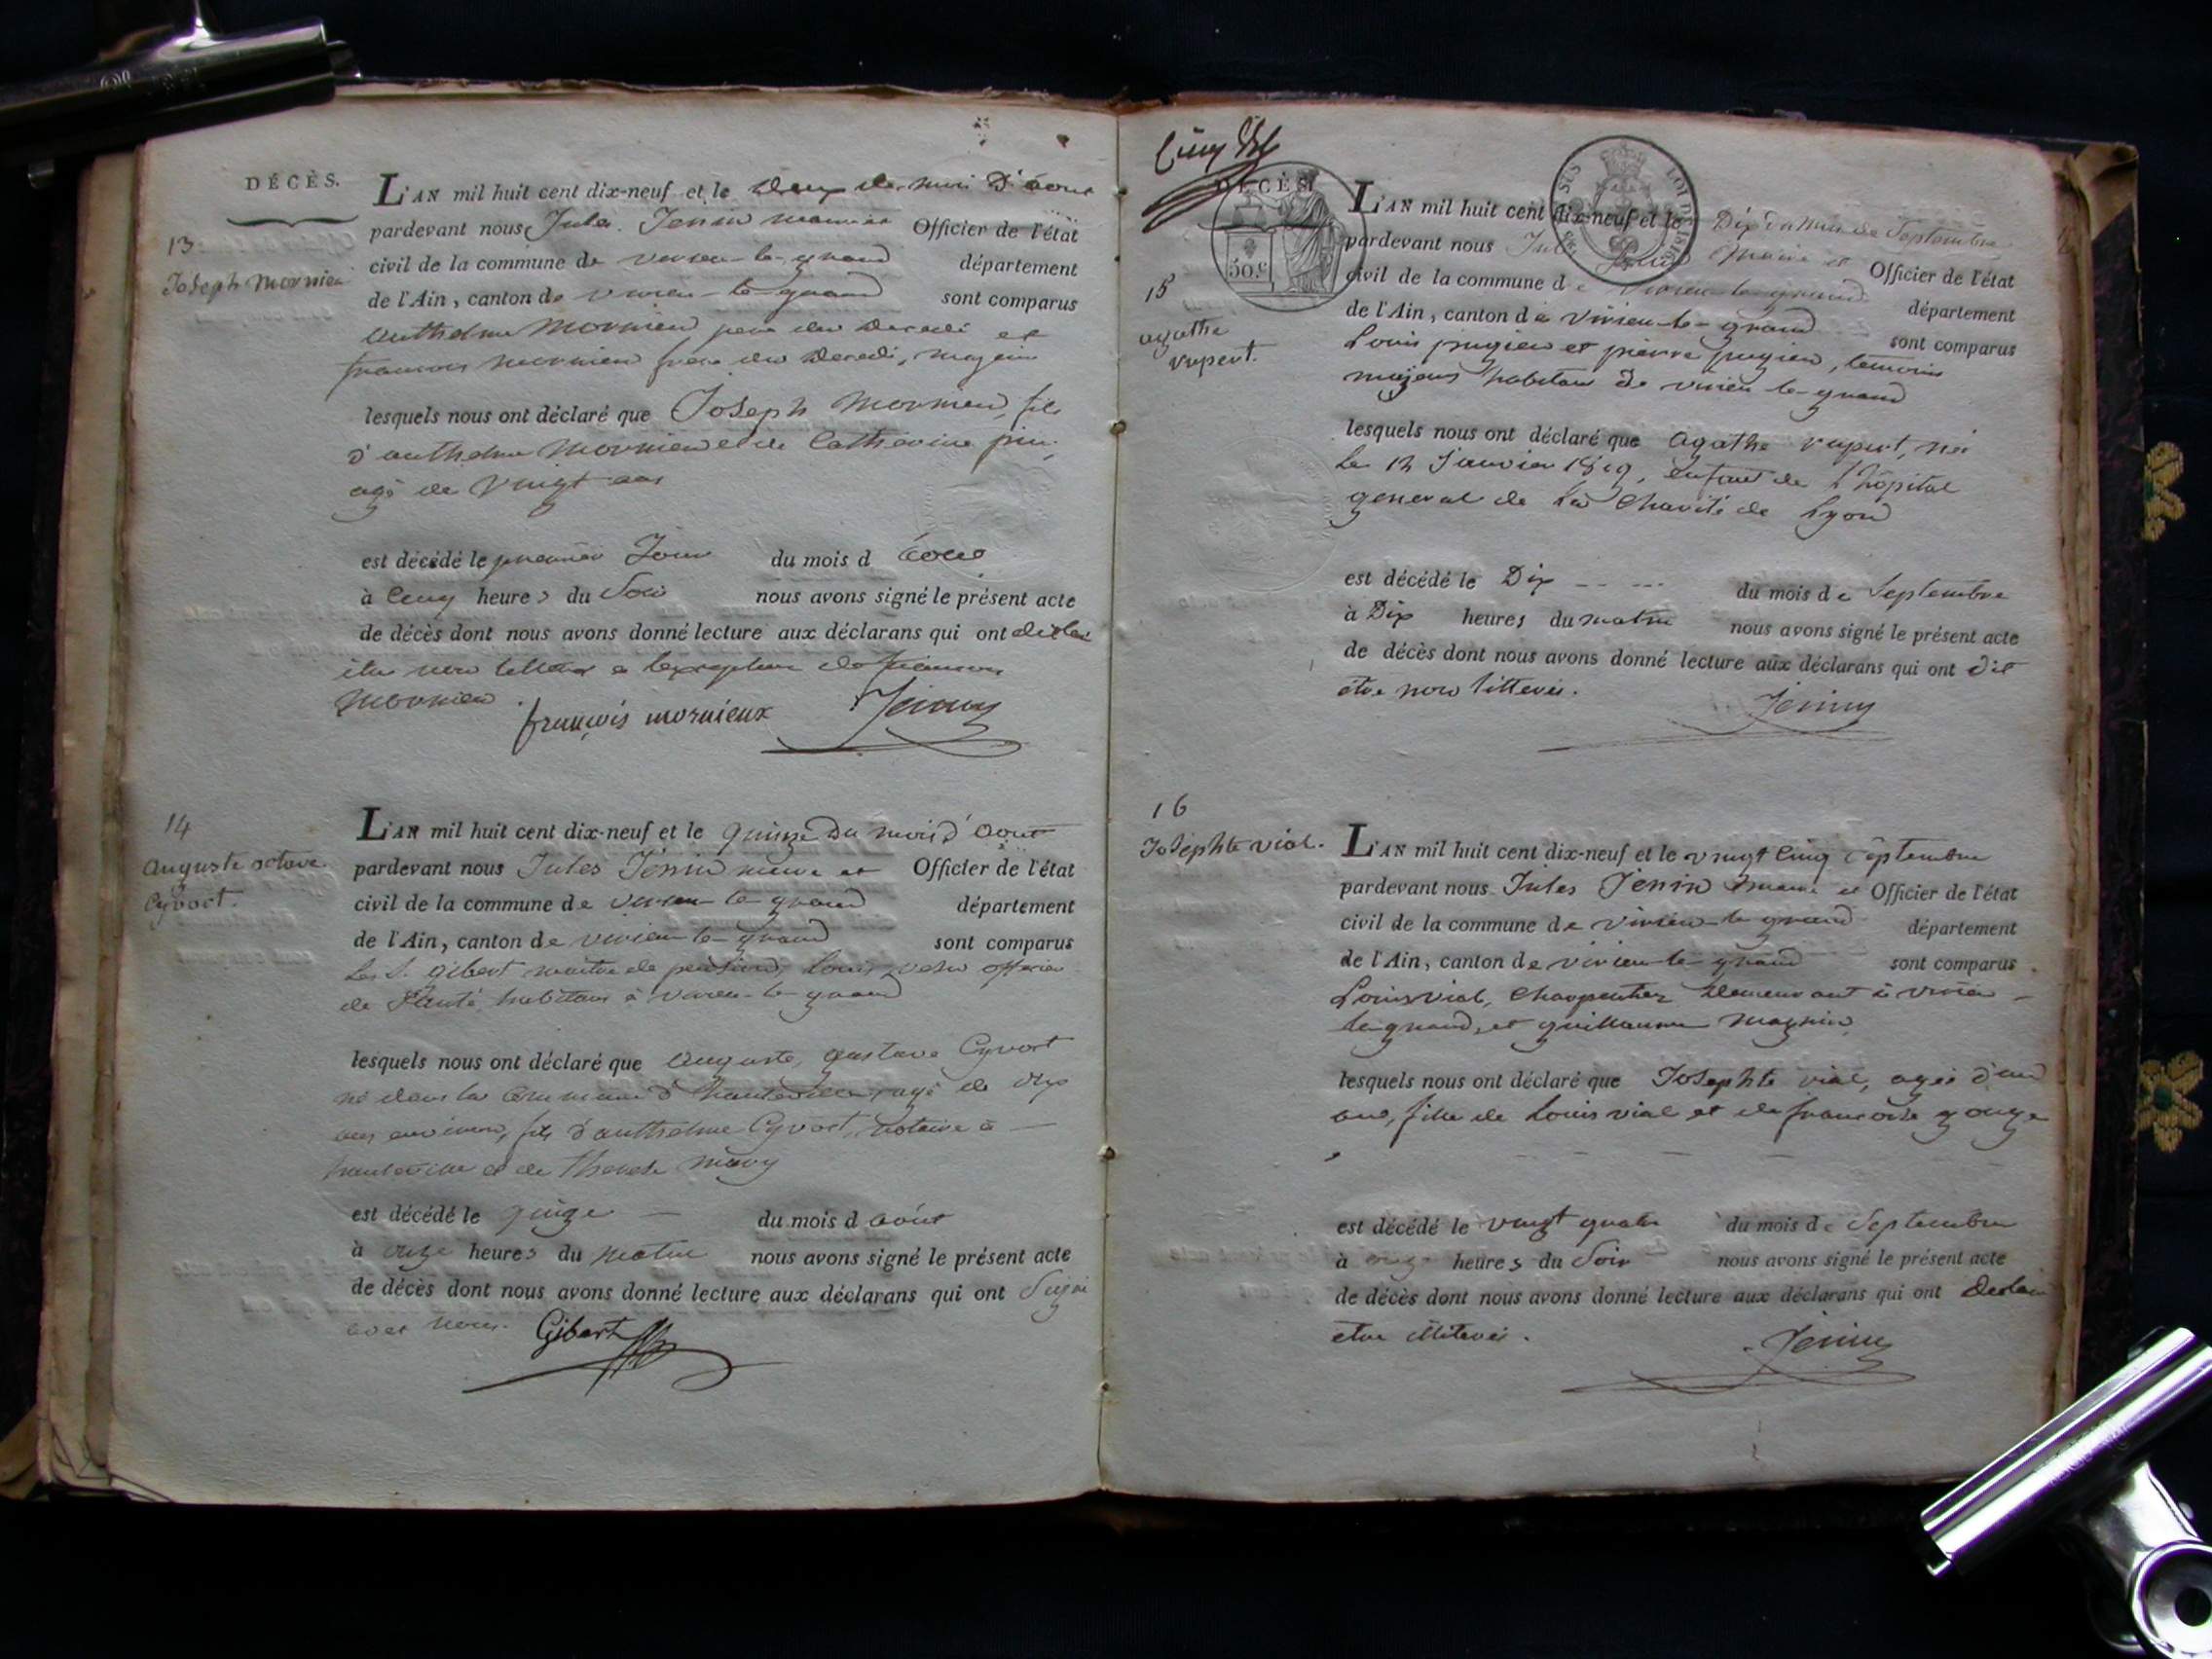 DÉCÈS.
13
Joseph Mornieu
L'AN mil huit cent dix-neuf et le Deux du mois D'aout
pardevant nous Jules Jenin maire et Officier de l'état
civil de la commune de virieu-le-grand département
de l'Ain, canton de virieu-le-grand sont comparus
anthelme Mornieu pere du decedé et
francois mornieu frere du decedé, majeur
lesquels nous ont déclaré que Joseph Mornieu, fils
d'anthelme Mornieu et de Catherine
agé de vingt ans
est décédé le premier Jour du mois d aout
à Cinq heures du Soir nous avons signé le présent acte
de décès dont nous avons donné lecture aux déclarans qui ont
être non à l'exception de francois
Mornieu.
françois mornieux Jenin
14
auguste octave
Cyvoct.
L'AN mil huit cent dix-neuf et le quinze Du mois d'aout
pardevant nous Jules Jenin maire et Officier de l'état
civil de la commune de virieu-le-grand département
de l'Ain, canton de virieu-le-grand sont comparus
Les S. gibert maitre de pension, Louis officier
de Santé, habitans à virieu-le-grand
lesquels nous ont déclaré que auguste, gustave Cyvoct
né dans la Commune d'hauteville, agé de dix
ans environ, fils d'anthelme Cyvoct, notaire à
hauteville et de therese
est décédé le quinze du mois d août
à onze heures du matin nous avons signé le présent acte
de décès dont nous avons donné lecture aux déclarans qui ont Signé
avec nous. Gibert
Cinq
DÉCÈS
50.c
15
agathe
rupert.
L'AN mil huit cent dix-neuf et le Dix du mois de Septembre
pardevant nous Jules Jenin maire et Officier de l'état
civil de la commune de virieu-le-grand département
de l'Ain, canton de virieu-le-grand sont comparus
Louis pugieu et pierre pugieu, temoins
majeurs habitans de virieu-le-grand
lesquels nous ont déclaré que agathe rupert, née
le 12 Janvier 1819, enfant de l'hôpital
general de la Charité de Lyon
est décédé le Dix du mois de Septembre
à Dix heures du matin nous avons signé le présent acte
de décès dont nous avons donné lecture aux déclarans qui ont dit
etre non litterés.
Jenin
16
Josephte vial.
L'AN mil huit cent dix-neuf et le vingt Cinq Septembre
pardevant nous Jules Jenin maire et Officier de l'état
civil de la commune de virieu-le-grand département
de l'Ain, canton de virieu-le-grand sont comparus
Louis vial, Charpentier demeurant à virieu
le-grand, et guillaume magnin
lesquels nous ont déclaré que Josephte vial, agée d'un
ans, fille de Louis vial et de francoise gouge
est décédé le vingt quatre du mois de Septembre
à onze heures du Soir nous avons signé le présent acte
de décès dont nous avons donné lecture aux déclarans qui ont
etre illiterés.
Jenin